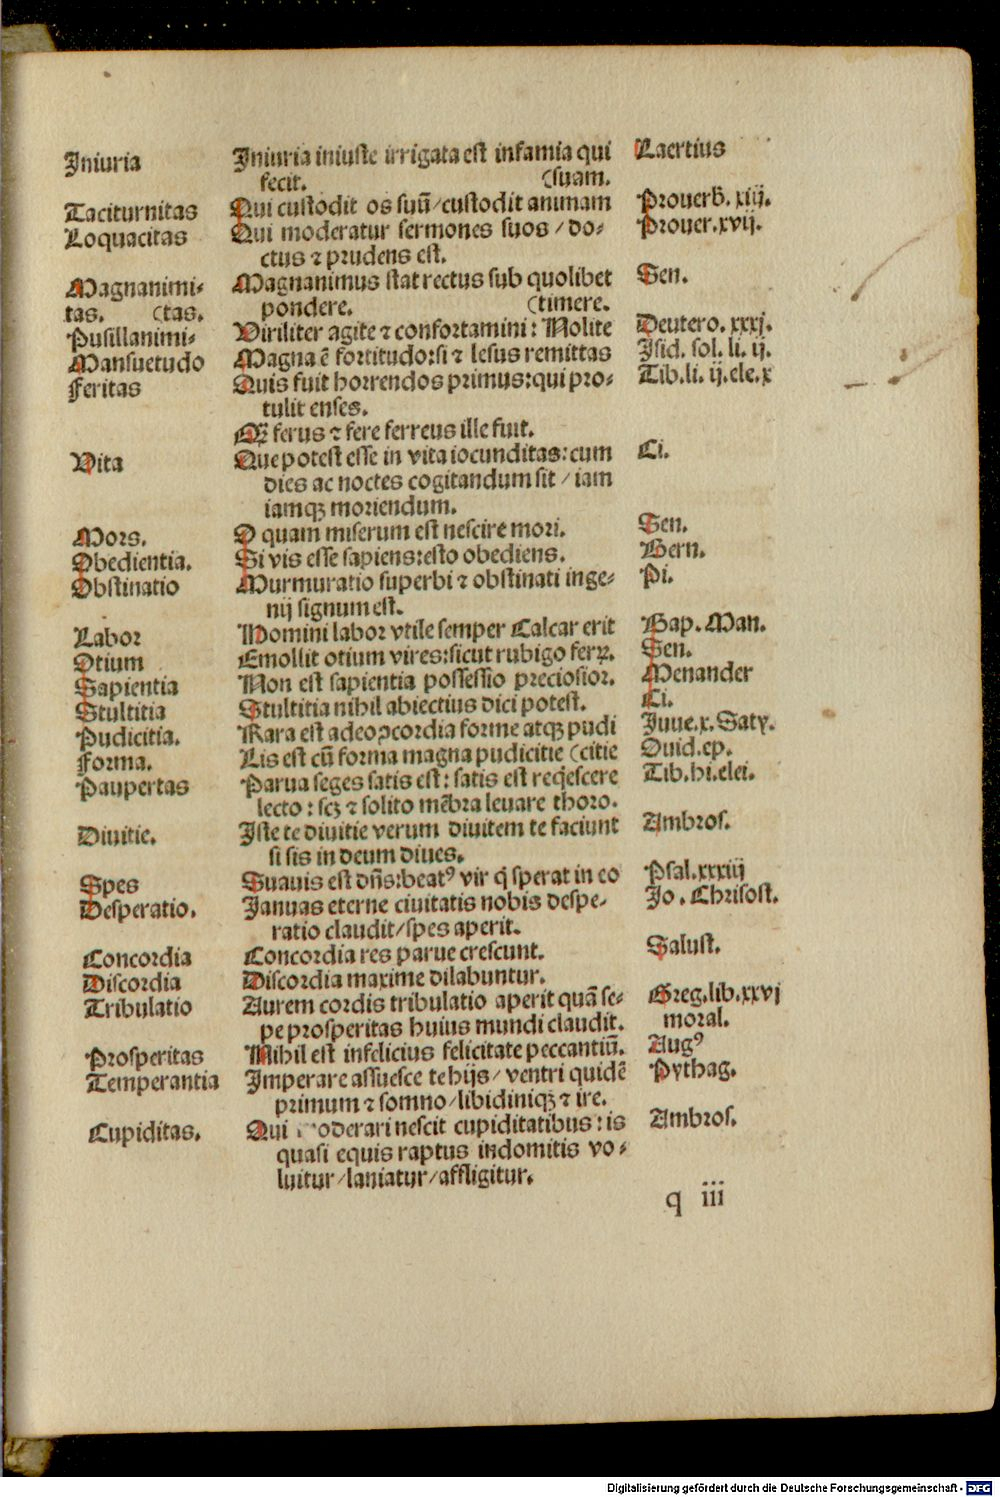 Iniuria Iniuria iniuste irrigata est infamia qui Laertius
fecit. (suam.
Taciturnitas Qui custodit os suũ/custodit animam Prouerb. xiij.
Loquacitas Qui moderatur sermones suos / do- Prouer.xvij.
ctus ⁊ prudens est.
Magnanimi- Magnanimus stat rectus sub quolibet Sen.
tas. (tas. pondere. (timere.
Pusillanimi- Viriliter agite ⁊ confortamini: Nolite Deutero. xxxj.
Mansuetudo Magna ẽ fortitudo:si ⁊ lesus remittas Isid. sol. li. ij.
Feritas Quis fuit horrendos primus:qui pro- Tib.li. ij.ele.x
tulit enses.
Qꝫ ferus ⁊ fere ferreus ille fuit.
Vita Que potest esse in vita iocunditas:cum Ci.
dies ac noctes cogitandum sit / iam
iamqꝫ moriendum.
Mors. O quam miserum est nescire mori. Sen.
Obedientia. Si vis esse sapiens:esto obediens. Bern.
Obstinatio Murmuratio superbi ⁊ obstinati inge- Pi.
nij signum est.
Labor Nomini labor vtile semper Calcar erit Bap. Man.
Otium Emollit otium vires:sicut rubigo ferꝝ. Sen.
Sapientia Non est sapientia possessio preciosior. Menander
Stultitia Stultitia nihil abiectius dici potest. Ci.
Pudicitia. Rara est adeo ꝯcordia forme atqꝫ pudi Juue.x. Saty.
Forma. Lis est cũ forma magna pudicitie (citie Ouid.ep.
Paupertas Parua seges satis est: satis est reqͥescere Tib.hi.elei.
lecto : scꝫ ⁊ solito mẽbra leuare thoro.
Diuitie. Iste te diuitie verum diuitem te faciunt Ambros.
si sis in deum diues.
Spes Suauis est dñs:beatꝰ vir q̇ sperat in eo Psal.xxxiij
Desperatio. Ianuas eterne ciuitatis nobis despe- Jo. Chrisost.
ratio claudit/spes aperit.
Concordia Concordia res parue crescunt. Salust.
Discordia Discordia maxime dilabuntur.
Tribulatio Aurem cordis tribulatio aperit quã se- Greg.lib.xxvj
pe prosperitas huius mundi claudit. moral.
Prosperitas Nihil est infelicius felicitate peccantiũ. Augꝰ
Temperantia Imperare assuesce te hijs/ ventri quidẽ Pythag.
primum ⁊ somno/libidiniqꝫ ⁊ ire.
Cupiditas. Qui moderari nescit cupiditatibus : is Ambros.
quasi equis raptus indomitis vo-
luitur/laniatur/affligitur.
q iii
Digitalisierung gefördert durch die Deutsche Forschungsgemeinschaft - DFG